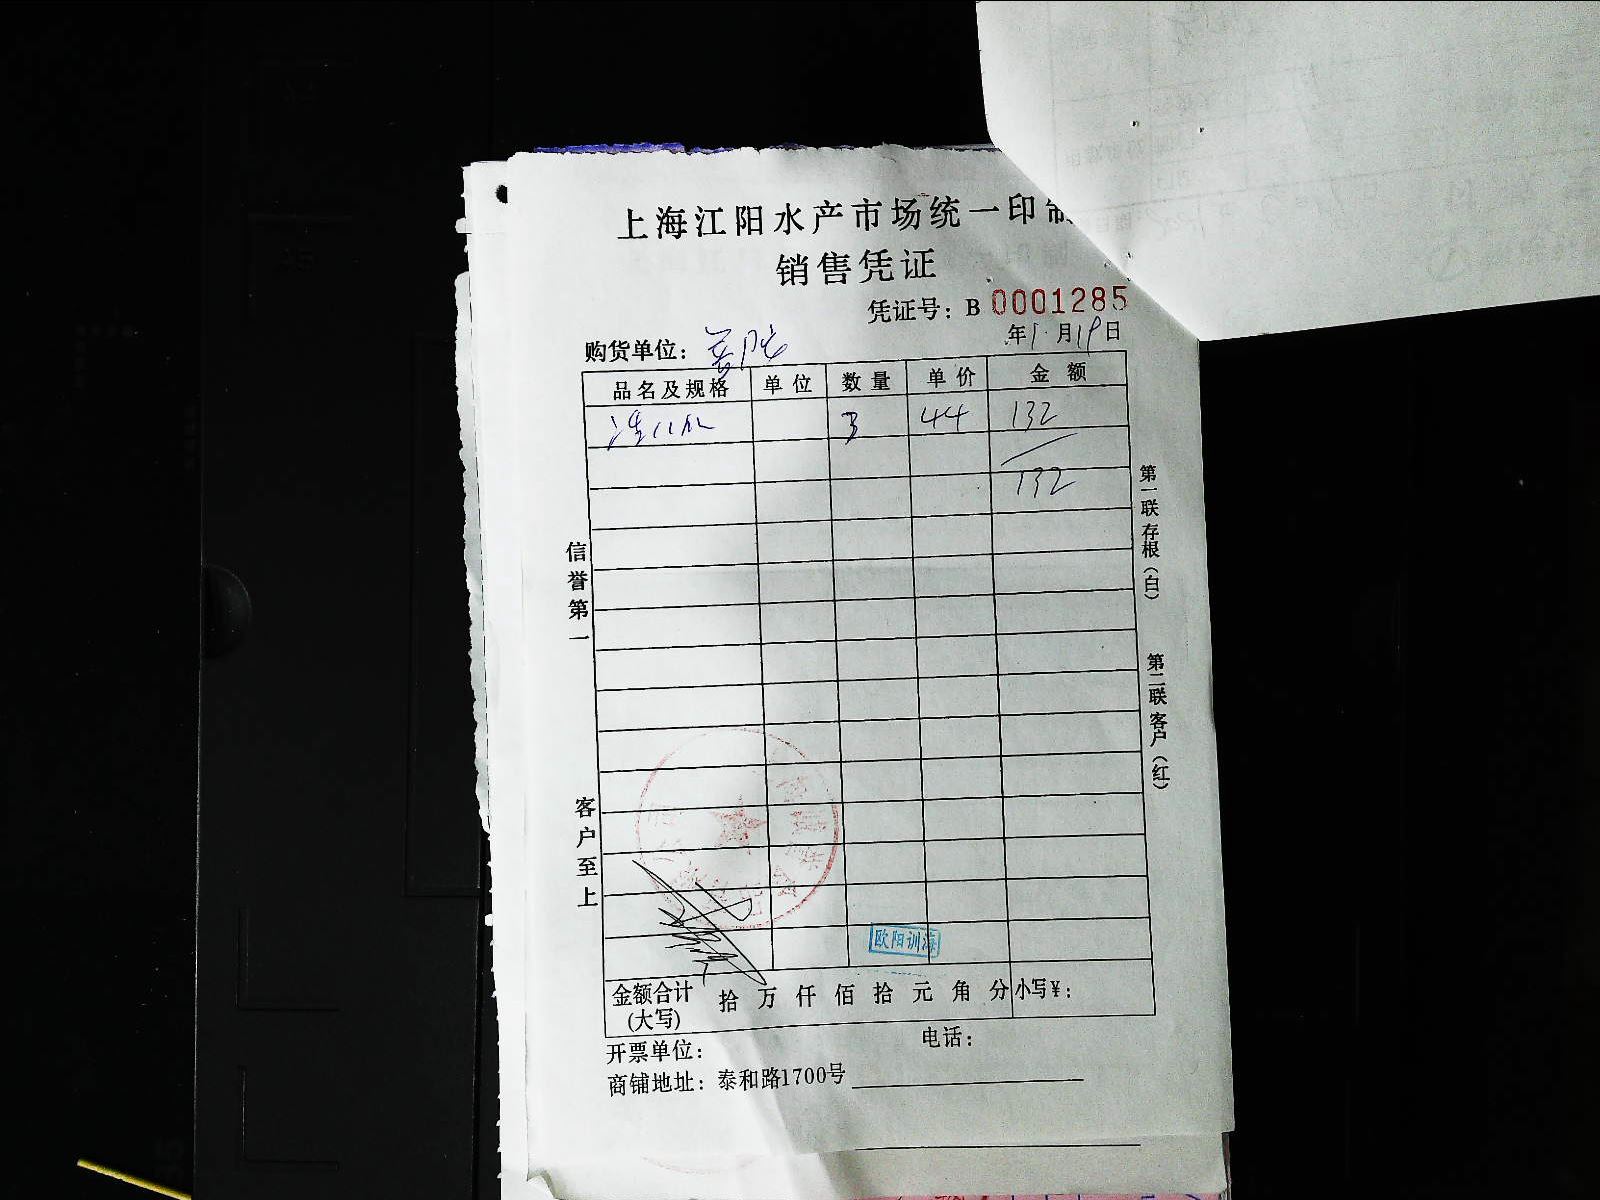 上海江阳水产市场统一印制
销售凭证
凭证号：B 0001285
购货单位：
年1月19日
品名及规格 单位 数量 单价 金额
3 44 132
132
信誉第一
客户至上
第一联存根（白）
第二联客户（红）
欧阳训海
金额合计（大写） 拾万仟佰拾元角分 小写￥：
开票单位： 电话：
商铺地址：泰和路1700号